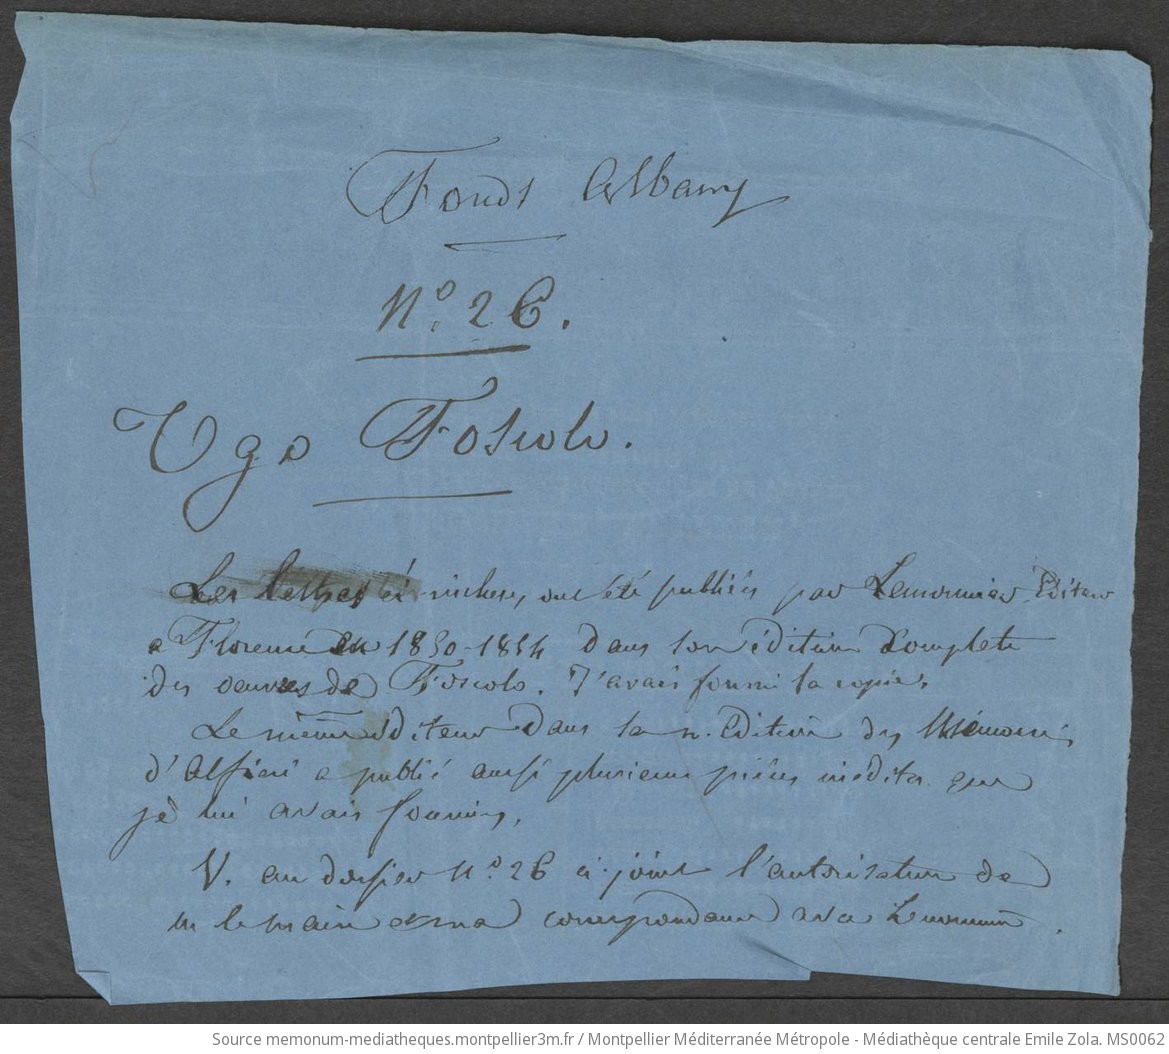 Fonds Albany
N.º 26.
Ugo Foscolo.
Les lettres ci-incluses, ont été publiées par Lemonnier Editeur
a Florence en 1850-1854 dans son édition complete
des oeuvres de Foscolo. J'avais fourni la copie.
Le même editeur dans sa n. Edition des Mémoires
d'Alfieri a publié aussi plusieurs pièces inedites que
je lui avais fournies.
V. au dossier N.º 26 ci-joint l'autorisation de
m le maire et ma correspondance avec Lemonnier.
Source memonum-mediatheques.montpellier3m.fr / Montpellier Méditerranée Métropole - Médiathèque centrale Emile Zola. MS0062